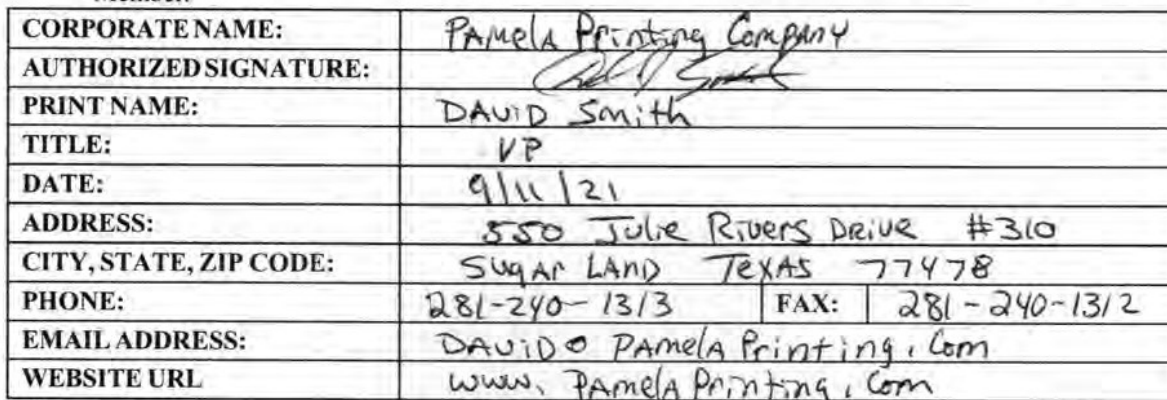 CORPORATE NAME: PAMelA Printing Company
AUTHORIZED SIGNATURE:
PRINT NAME: DAViD Smith
TITLE: VP
DATE: 9/11/21
ADDRESS: 550 Julie Rivers Drive #310
CITY, STATE, ZIP CODE: SugAr LAND TEXAS 77478
PHONE: 281-240-1313 FAX: 281-240-1312
EMAIL ADDRESS: DAViD@PAMelAPrinting.Com
WEBSITE URL www.PAMelAPrinting.Com